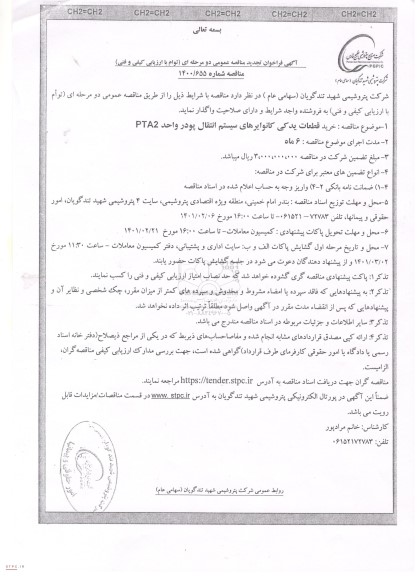 CH2=CH2 CH2=CH2 CH2=CH2 CH2=CH2 CH2=CH2 CH2=CH2
بسمه تعالی
آگهی فراخوان تجدید مناقصه عمومی دو مرحله ای (توام با ارزیابی کیفی و فنی)
مناقصه شماره ۱۴۰۰/۶۵۵
شرکت پتروشیمی شهید تندگویان (سهامی عام ) در نظر دارد مناقصه با شرایط ذیل را از طریق مناقصه عمومی دو مرحله ای (توأم
با ارزیابی کیفی و فنی) به فروشنده واجد شرایط و دارای صلاحیت واگذار نماید.
۱-موضوع مناقصه : خرید قطعات یدکی کانوایرهای سیستم انتقال پودر واحد PTA2
۲-مدت اجرای موضوع مناقصه : ۶ ماه
۳-مبلغ تضمین شرکت در مناقصه ۳،۰۰۰،۰۰۰،۰۰۰ ریال میباشد.
۴-انواع تضمین های معتبر برای شرکت در مناقصه:
۴-۱) ضمانت نامه بانکی ۴-۲) واریز وجه به حساب اعلام شده در اسناد مناقصه
۵-محل و مهلت توزیع اسناد مناقصه : بندر امام خمینی، منطقه ویژه اقتصادی پتروشیمی، سایت ۴ پتروشیمی شهید تندگویان، امور
حقوقی و پیمانها، تلفن ۷۲۷۸۳-۰۶۱۵۲۱ تا ساعت ۱۶:۰۰ مورخ ۱۴۰۱/۰۲/۰۶
۶-محل و مهلت تحویل پاکات پیشنهادی : کمیسیون معاملات- تا ساعت ۱۶:۰۰ مورخ ۱۴۰۱/۰۲/۲۱
۷- محل و تاریخ مرحله اول گشایش پاکات الف و ب: سایت اداری و پشتیبانی، دفتر کمیسیون معاملات - ساعت ۱۱:۳۰ مورخ
۱۴۰۱/۰۳/۰۲ و از پیشنهاد دهندگان دعوت می شود در جلسه گشایش پاکات حضور یابند.
تذکر۱: پاکت پیشنهادی مناقصه گری گشوده خواهد شد که حد نصاب امتیاز ارزیابی کیفی و فنی را کسب نمایند.
تذکر۲: به پیشنهادهایی که فاقد سپرده یا امضاء مشروط و مخدوش و سپرده های کمتر از میزان مقرر، چک شخصی و نظایر آن و
پیشنهادهایی که پس از انقضاء مدت مقرر در آگهی واصل شود مطلقاً ترتیب اثر داده نخواهد شد.
تذکر۳: سایر اطلاعات و جزئیات مربوطه در اسناد مناقصه مندرج می باشد.
تذکر۴: ارائه کپی مصدق قراردادهای مشابه انجام شده و مفاصاحساب‌های ذیربط که در یکی از مراجع ذیصلاح(دفتر خانه اسناد
رسمی یا دادگاه یا امور حقوقی کارفرمای طرف قرارداد)گواهی شده است، جهت بررسی مدارک ارزیابی کیفی مناقصه‌گران،
الزامیست.
مناقصه گران جهت دریافت اسناد مناقصه به آدرس https://tender.stpc.ir مراجعه نمایند.
ضمناً این آگهی در پورتال الکترونیکی پتروشیمی شهید تندگویان به آدرس www. stpc.ir در قسمت مناقصات/مزایدات قابل
رویت می باشد.
کارشناس: خانم مرادپور
تلفن: ۰۶۱۵۲۱۷۲۷۸۳
روابط عمومی شرکت پتروشیمی شهید تندگویان (سهامی عام)